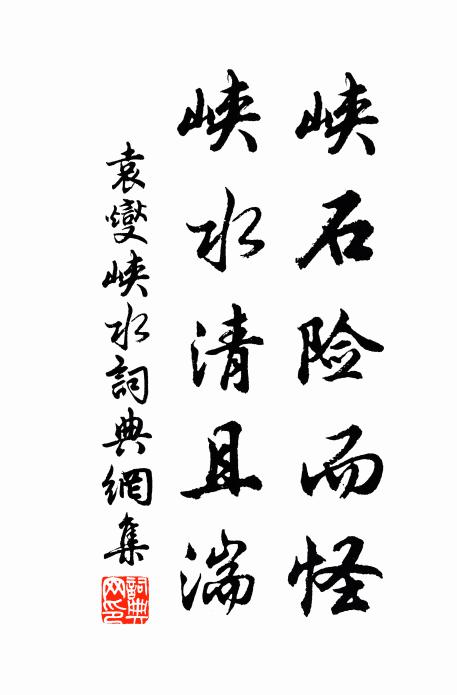 峡石险而怪
峡水清且湍
袁燮峡水詞典網集
詞典网印